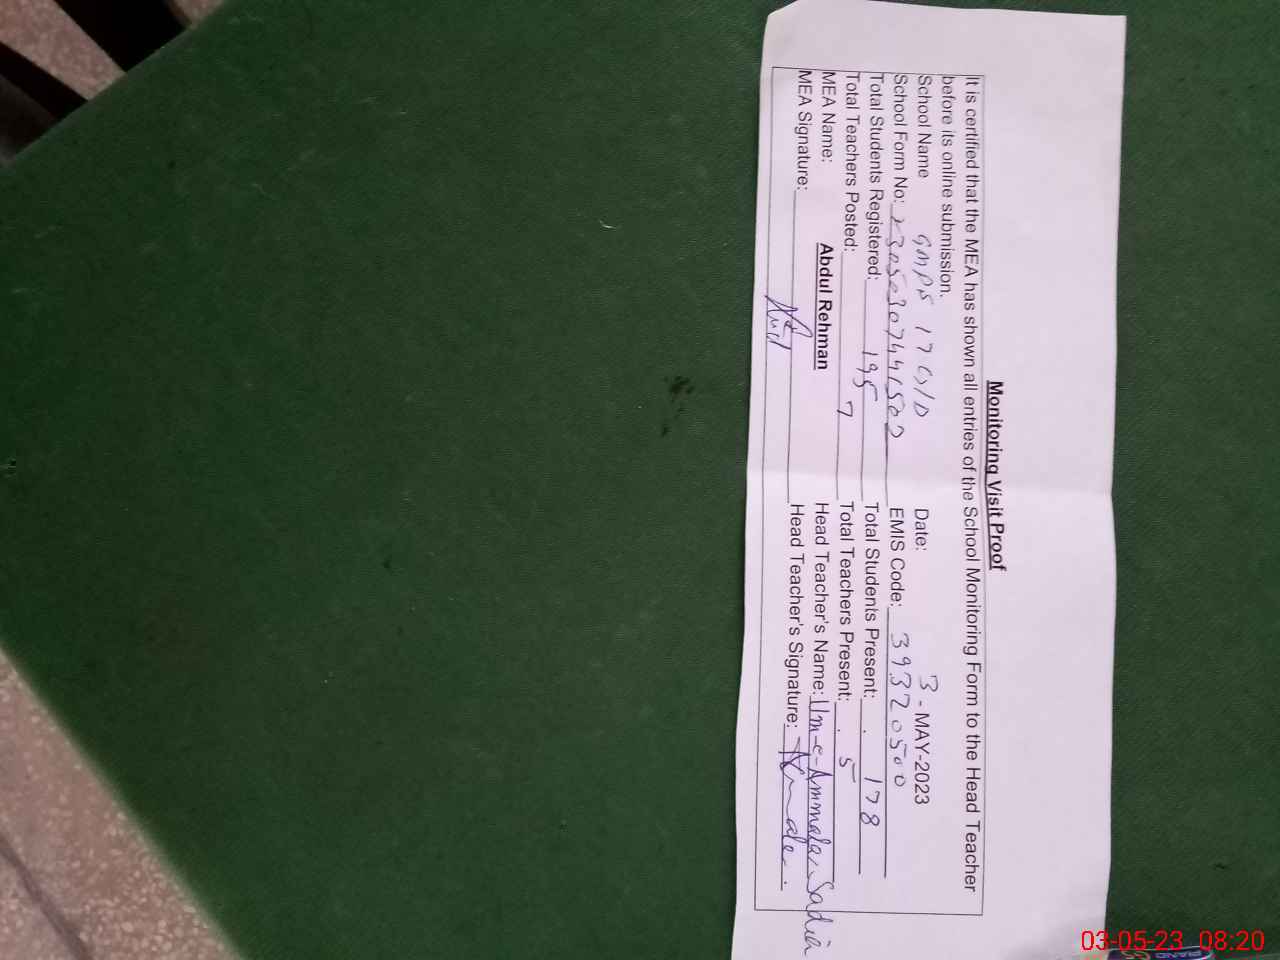 Monitoring Visit Proof
It is certified that the MEA has shown all entries of the School Monitoring Form to the Head Teacher
before its online submission.
School Name GMPS 17 G/D Date: 3 - MAY-2023
School Form No: EMIS Code: 39320500
Total Students Registered: 195 Total Students Present: 178
Total Teachers Posted: 7 Total Teachers Present: 5
MEA Name: Abdul Rehman Head Teacher's Name: Um-e-Ammala Sadia
MEA Signature: Head Teacher's Signature:
03-05-23 08:20
PIANO